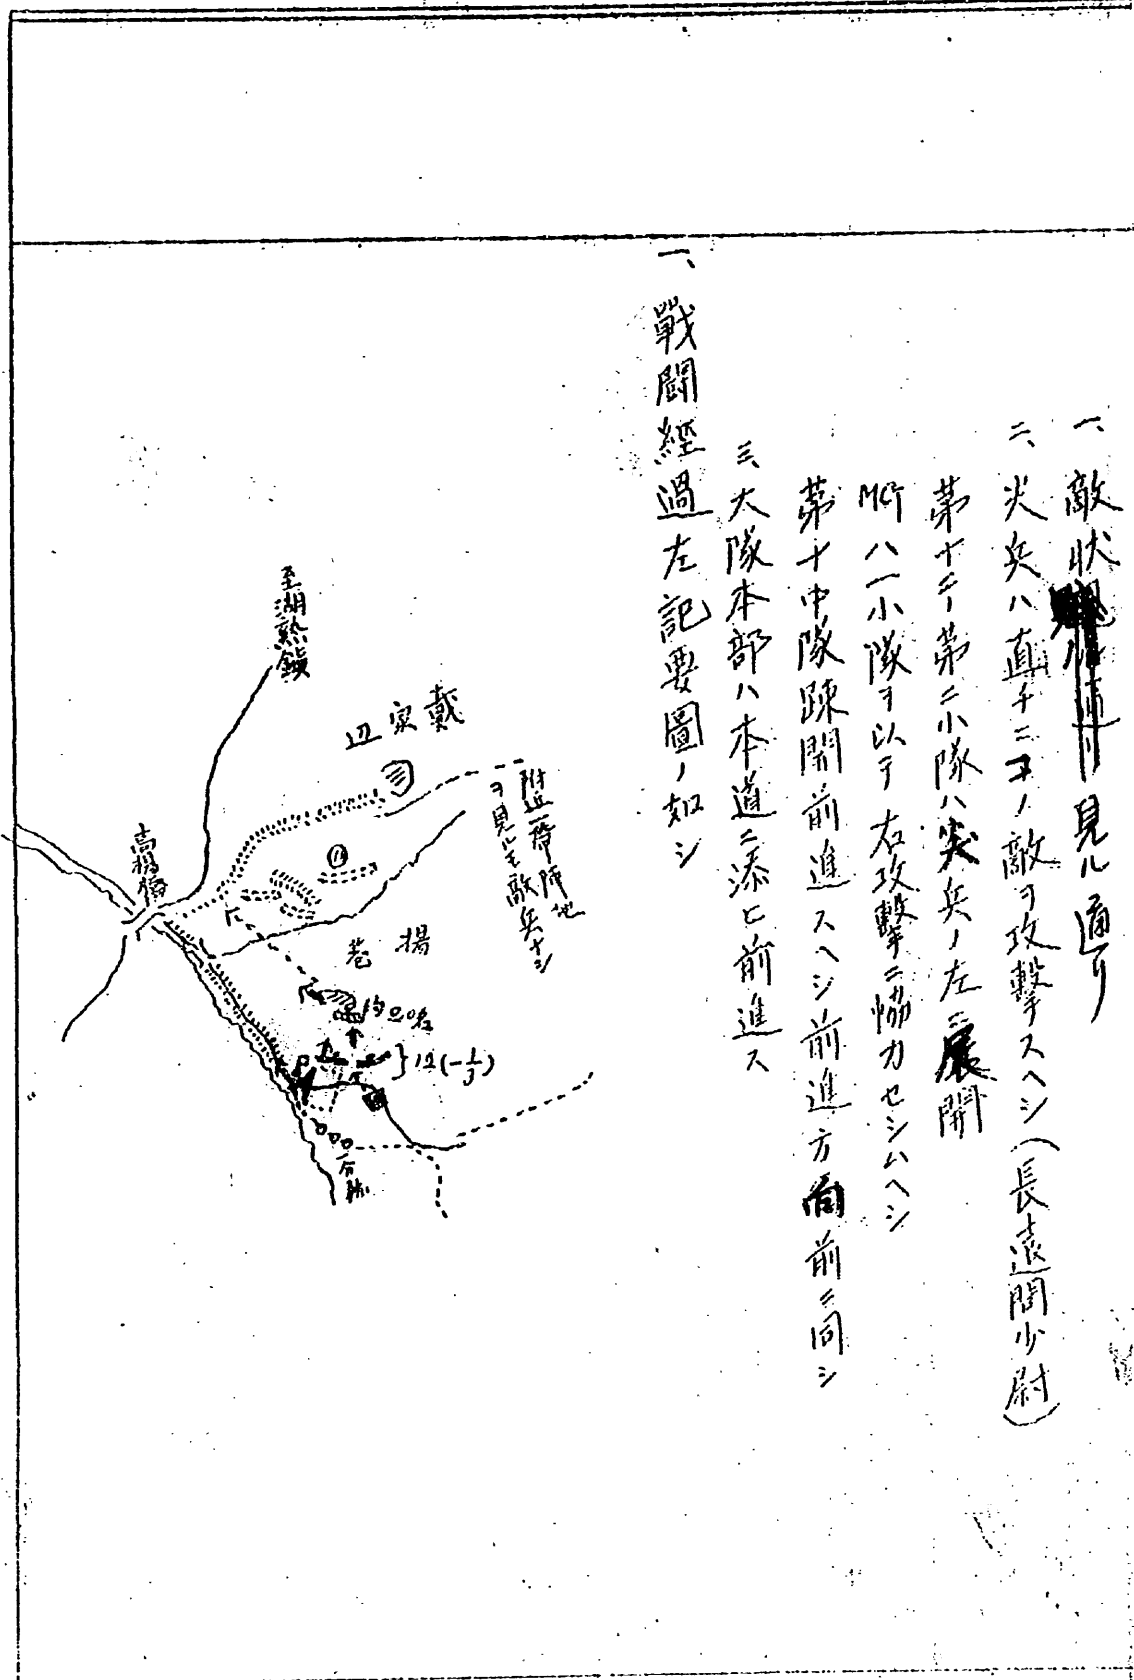 一、敵状見ル通リ
二、尖兵ハ直チニコノ敵ヲ攻撃スヘシ(長遠間少尉)
第十二ノ第二小隊ハ尖兵ノ左ニ展開
MGハ一小隊ヲ以テ右攻撃ニ協力セシムヘシ
第十中隊疎開前進スヘシ前進方向前ニ同シ
三、大隊本部ハ本道ニ添ヒ前進ス
一、戰闘經過左記要圖ノ如シ
附近一帯陣地
ヲ見ルモ敵兵ナシ
戴家辺
至湖熟鎮
高橋
揚巷
約
12(-1/3)